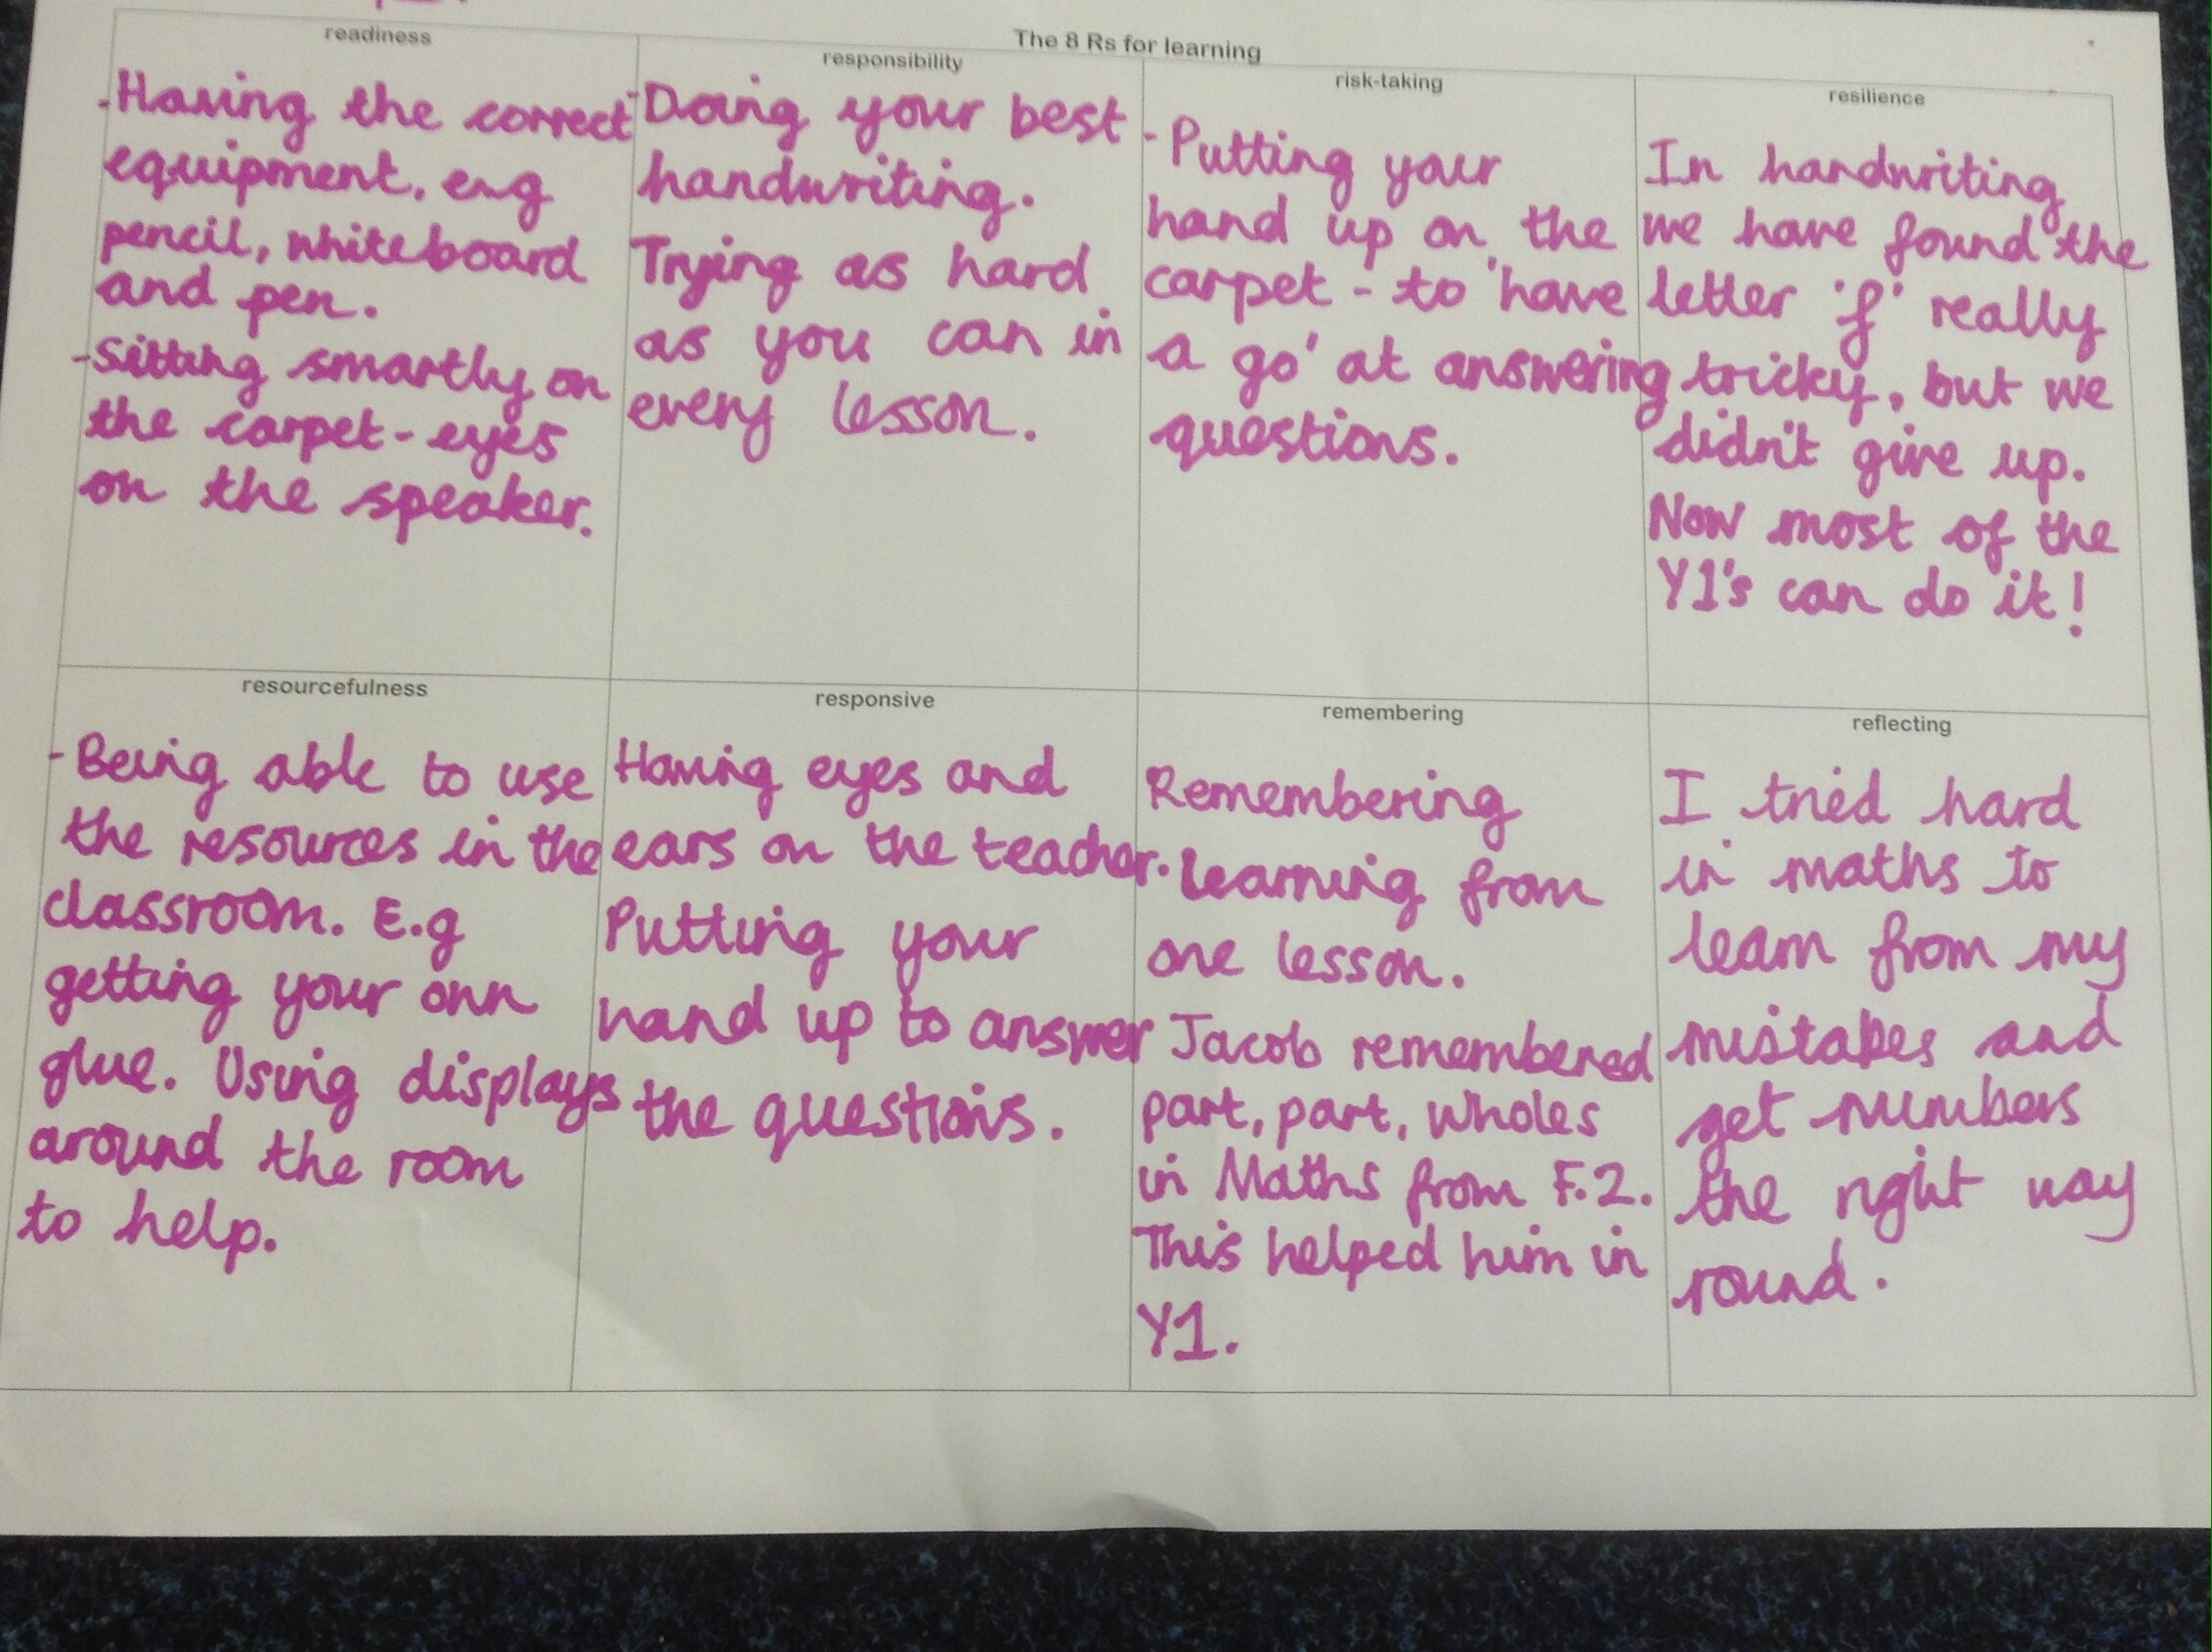 The 8 Rs for learning
readiness
-Having the correct
equipment, e.g
pencil, whiteboard
and pen.
-Sitting smartly on
the carpet - eyes
on the speaker.
responsibility
-Doing your best
handwriting.
Trying as hard
as you can in
every lesson.
risk-taking
-Putting your
hand up on the
carpet - to 'have
a go' at answering
questions.
resilience
In handwriting
we have found the
letter 'f' really
tricky, but we
didn't give up.
Now most of the
Y1's can do it!
resourcefulness
-Being able to use
the resources in the
classroom. E.g
getting your own
glue. Using displays
around the room
to help.
responsive
Having eyes and
ears on the teacher.
Putting your
hand up to answer
the questions.
remembering
Remembering
learning from
one lesson.
Jacob remembered
part, part, wholes
in Maths from F.2.
This helped him in
Y1.
reflecting
I tried hard
in maths to
learn from my
mistakes and
get numbers
the right way
round.